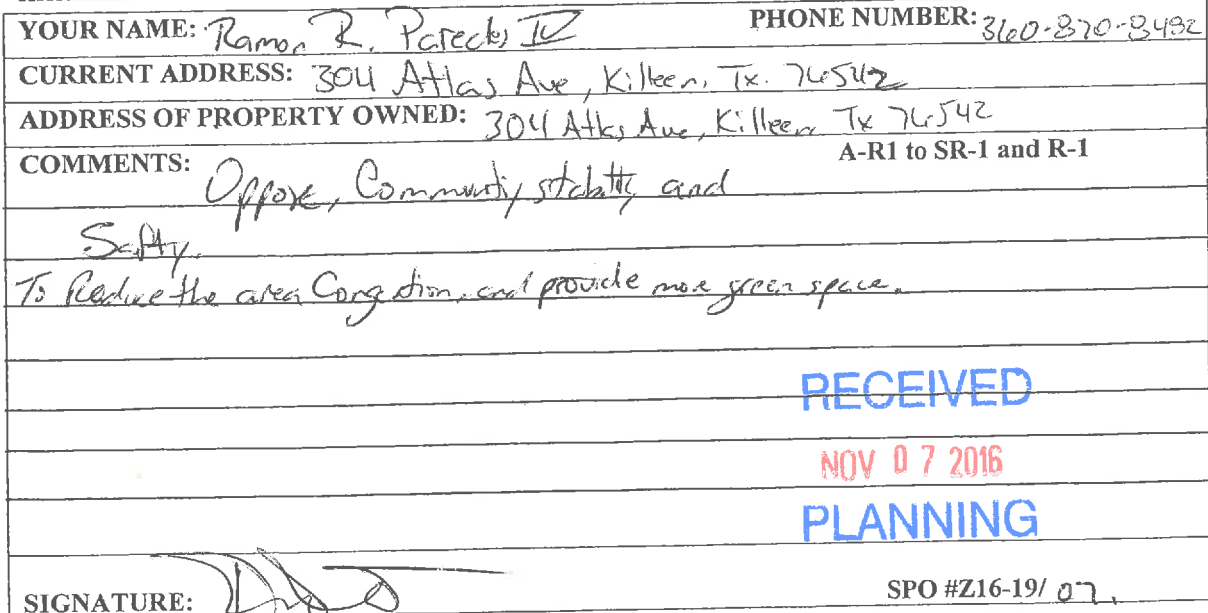 YOUR NAME: Ramon R. Paredes IV PHONE NUMBER: 360-870-8492
CURRENT ADDRESS: 304 Atlas Ave, Killeen, Tx. 76542
ADDRESS OF PROPERTY OWNED: 304 Atlas Ave, Killeen Tx 76542
COMMENTS: A-R1 to SR-1 and R-1
Oppose, Community stability, and
Safty.
To Reduce the area Congestion, and provide more green space.
RECEIVED
NOV 07 2016
PLANNING
SIGNATURE: SPO #Z16-19/ 07.